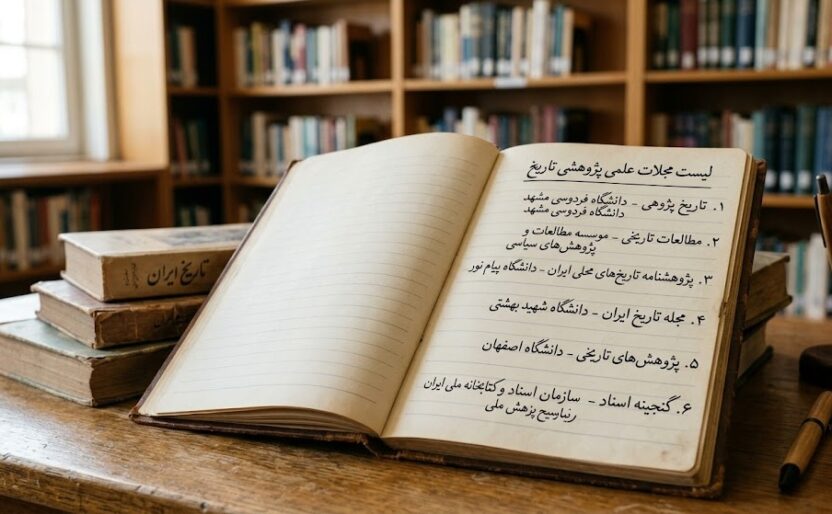 لیست مجلات علمی پژوهشی تاریخ
۱. تاریخ پژوهی - دانشگاه فردوسی مشهد
دانشگاه فردوسی مشهد
۲. مطالعات تاریخی - موسسه مطالعات و
پژوهش‌های سیاسی
۳. پژوهشنامه تاریخ‌های محلی ایران - دانشگاه پیام نور
۴. مجله تاریخ ایران - دانشگاه شهید بهشتی
۵. پژوهش‌های تاریخی - دانشگاه اصفهان
۶. گنجینه اسناد - سازمان اسناد و کتابخانه ملی ایران
ملی
تاریخ ایران